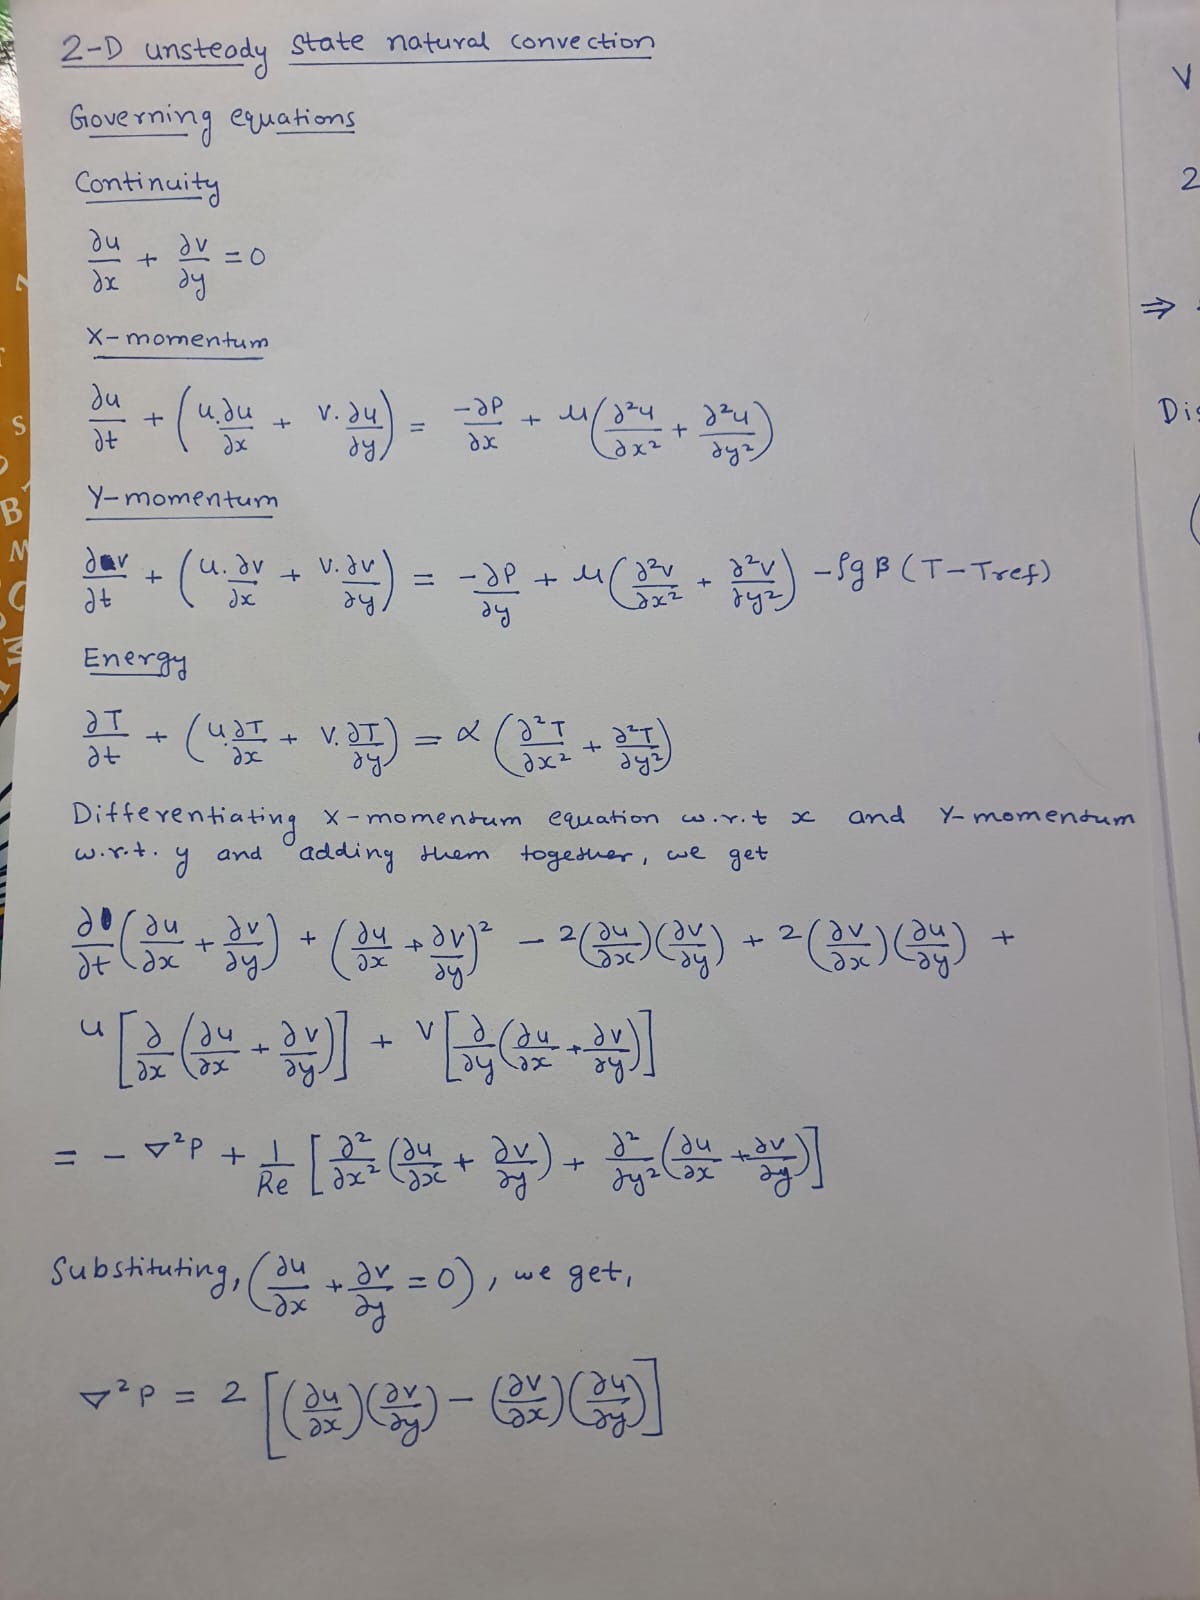 2-D unsteady state natural convection
Governing equations
Continuity
∂u/∂x + ∂v/∂y = 0
X-momentum
∂u/∂t + (u.∂u/∂x + v.∂u/∂y) = -∂P/∂x + μ(∂²u/∂x² + ∂²u/∂y²)
Y-momentum
∂v/∂t + (u.∂v/∂x + v.∂v/∂y) = -∂P/∂y + μ(∂²v/∂x² + ∂²v/∂y²) - ρgβ(T-Tref)
Energy
∂T/∂t + (u.∂T/∂x + v.∂T/∂y) = α(∂²T/∂x² + ∂²T/∂y²)
Differentiating X-momentum equation w.r.t x and Y-momentum
w.r.t. y and adding them together, we get
∂/∂t(∂u/∂x + ∂v/∂y) + (∂u/∂x + ∂v/∂y)² - 2(∂u/∂x)(∂v/∂y) + 2(∂v/∂x)(∂u/∂y) +
u[∂/∂x(∂u/∂x + ∂v/∂y)] + v[∂/∂y(∂u/∂x + ∂v/∂y)]
= - ∇²P + 1/Re[∂²/∂x²(∂u/∂x + ∂v/∂y) + ∂²/∂y²(∂u/∂x + ∂v/∂y)]
Substituting, (∂u/∂x + ∂v/∂y = 0), we get,
∇²P = 2[(∂u/∂x)(∂v/∂y) - (∂v/∂x)(∂u/∂y)]
V
2
⇒